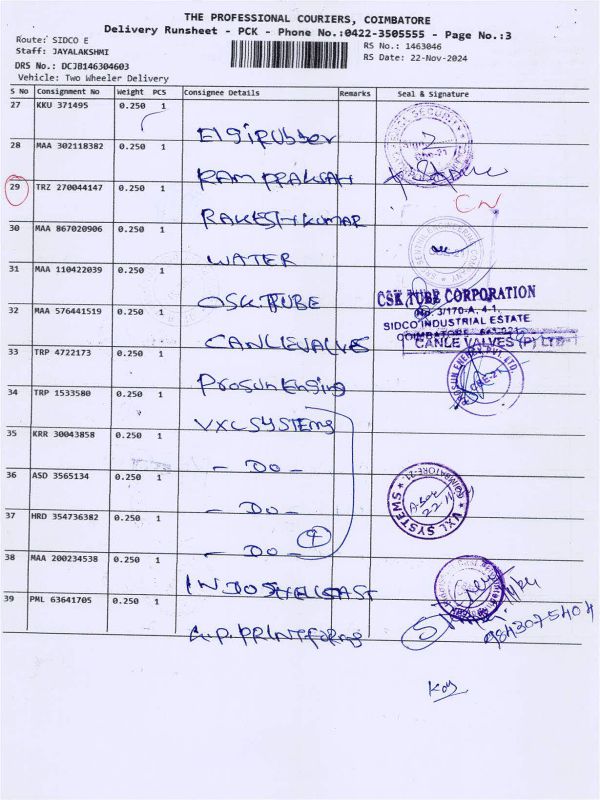 THE PROFESSIONAL COURIERS, COIMBATORE
Delivery Runsheet - PCK - Phone No.:0422-3505555 - Page No.:3
Route: SIDCO E
RS No.: 1463046
Staff: JAYALAKSHMI
RS Date: 22-Nov-2024
DRS No.: DCJB146304603
Vehicle: Two Wheeler Delivery
S No Consignment No Weight PCS Consignee Details Remarks Seal & Signature
27 KKU 371495 0.250 1 Elgi Rubber
28 MAA 302118382 0.250 1 RAM PRAKSAH
29 TRZ 270044147 0.250 1 RAKESH KUMAR CN
30 MAA 867020906 0.250 1 WATER
31 MAA 110422039 0.250 1 CSK.TUBE
CSK TUBE CORPORATION
No. 3/170-A, 4-1,
SIDCO INDUSTRIAL ESTATE
32 MAA 576441519 0.250 1 CANLEVALVES
COIMBATORE 641 021
CANLE VALVES (P) LTD
33 TRP 4722173 0.250 1 Prosun Ensing
PROSUN ENERGY PVT. LTD.
34 TRP 1533580 0.250 1 VXL SYSTEMS
35 KRR 30043858 0.250 1 - Do -
36 ASD 3565134 0.250 1 - Do -
VXL SYSTEMS
COIMBATORE-21
22/11
37 HRD 354736382 0.250 1 - Do -
4
38 MAA 200234538 0.250 1 INDOSHELCAST
39 PML 63641705 0.250 1 A.P. PRINT forms
9843075404